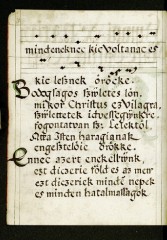 mindeneknec kic voltanac es
kic lesznek öröcke.
Bodogsagos szwletes lön,
mikor Christus ez vilagra
szwlettetek idvessegwnkre
fogontatvan sz: Lelektöl,
Atya Isten haragianak
engesztelöie örökke.
Ennec azert enekellywnk,
est diczerie föld es az men
est diczeriek minde nepek
es minden hatalmassagok